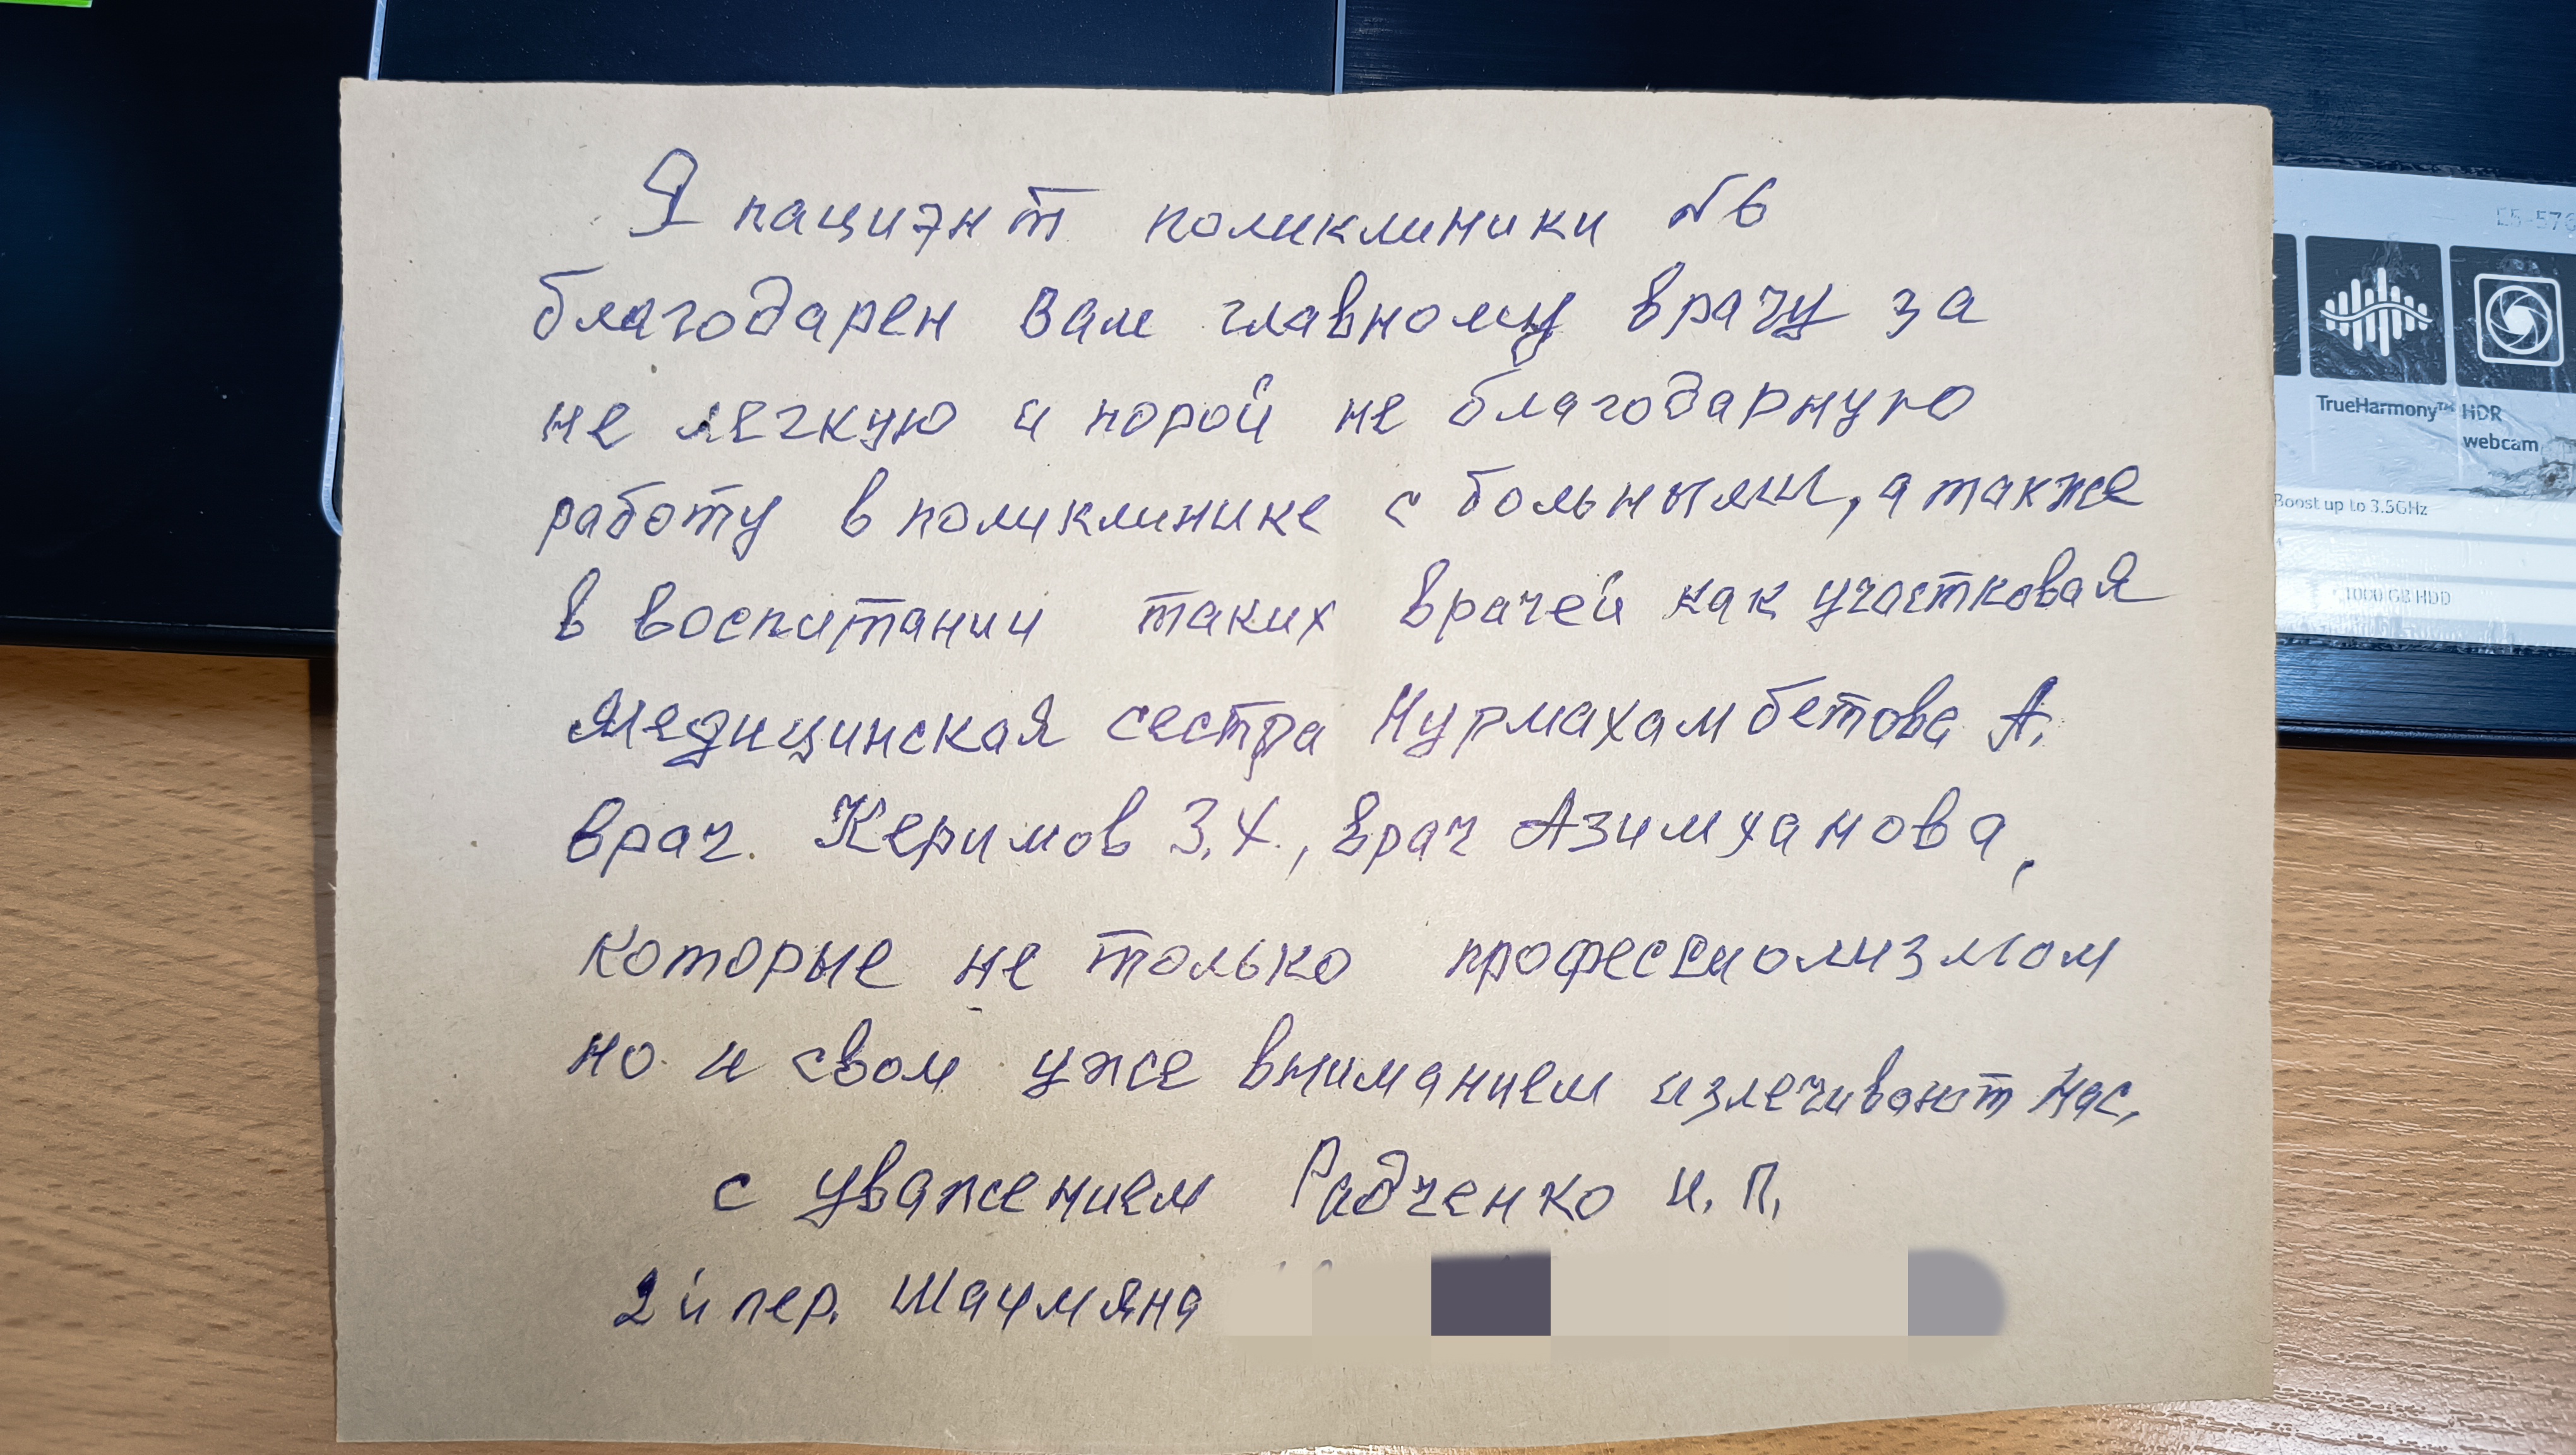 Я пациэнт поликлиники №6
благодарен Вам главному врачу за
не легкую и порой не благодарную
работу в поликлинике с больными, а также
в воспитании таких врачей как участковая
медицинская сестра Нурмахамбетова А.
врач. Керимов З.Х., врач Азимханова,
которые не только профессиолизмом
но и свом уже вниманием излечивают нас,
с уважением Радченко И.П.
2й пер. Шаумяна
TrueHarmony™ HDR
webcam
Boost up to 3.5GHz
1000 GB HDD